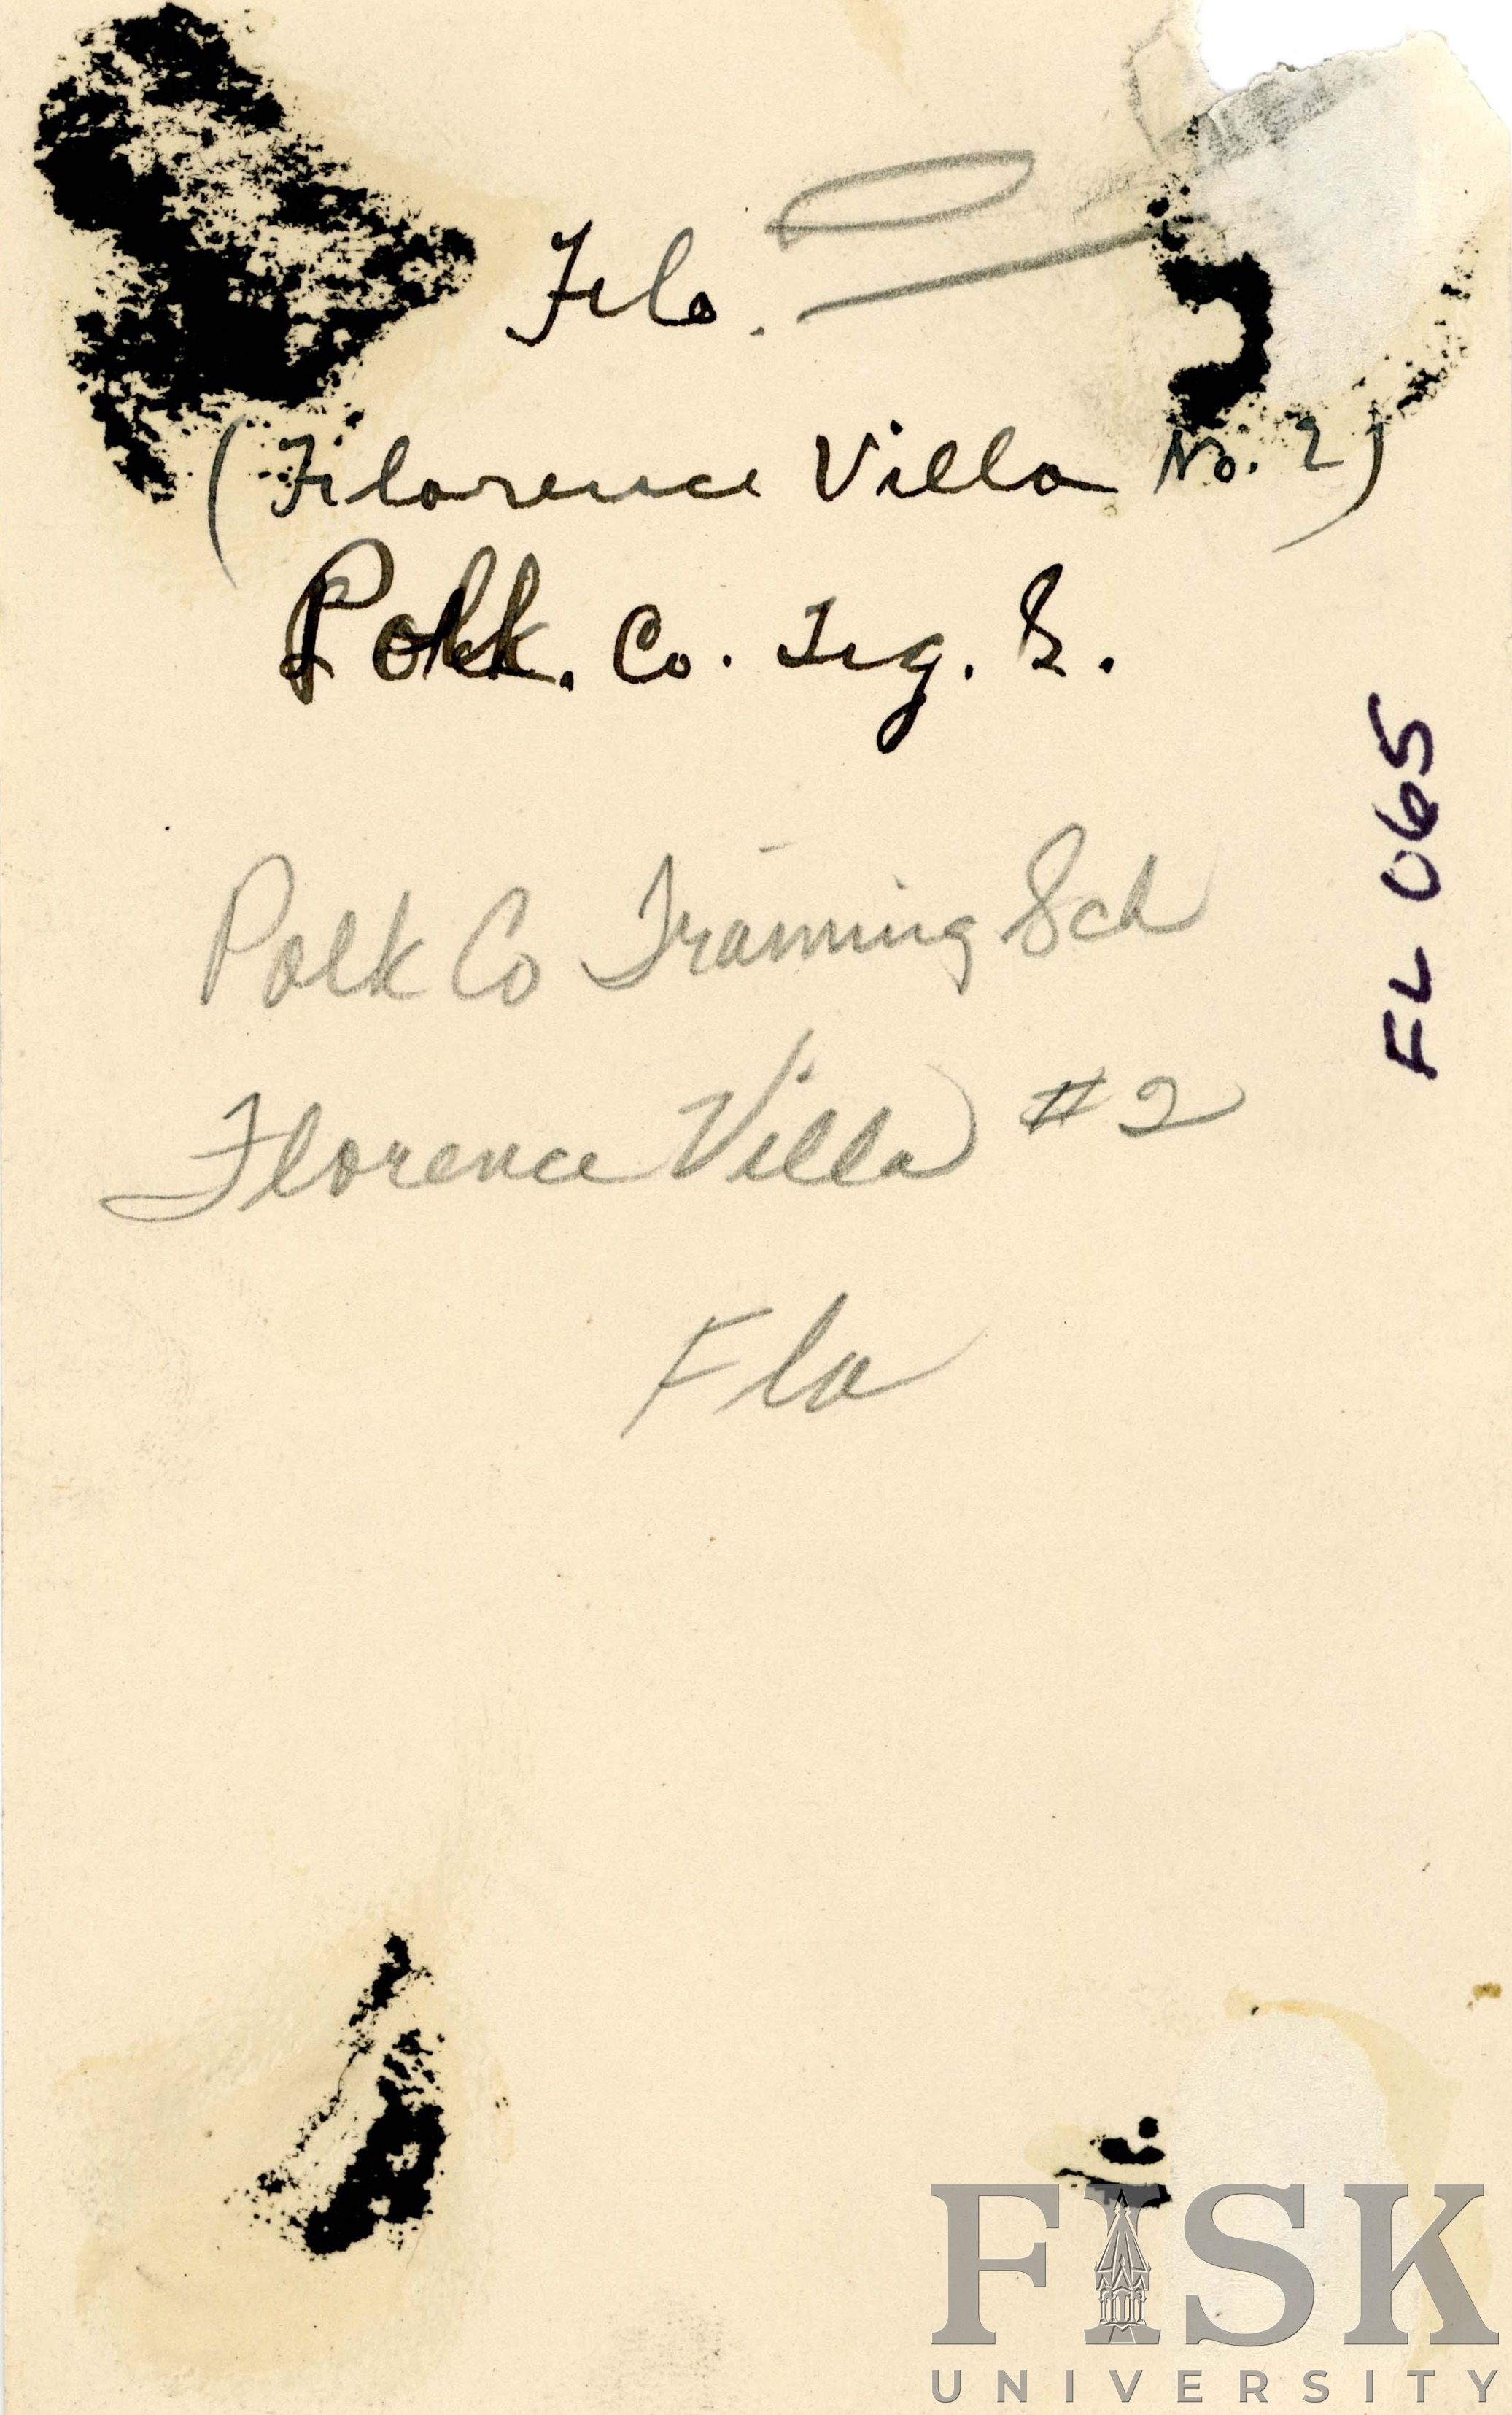 Fla.
(Florence Villa No. 2)
Polk. Co. Trg. S.
FL 065
Polk Co Training Sch
Florence Villa #2
Fla
FISK
UNIVERSITY